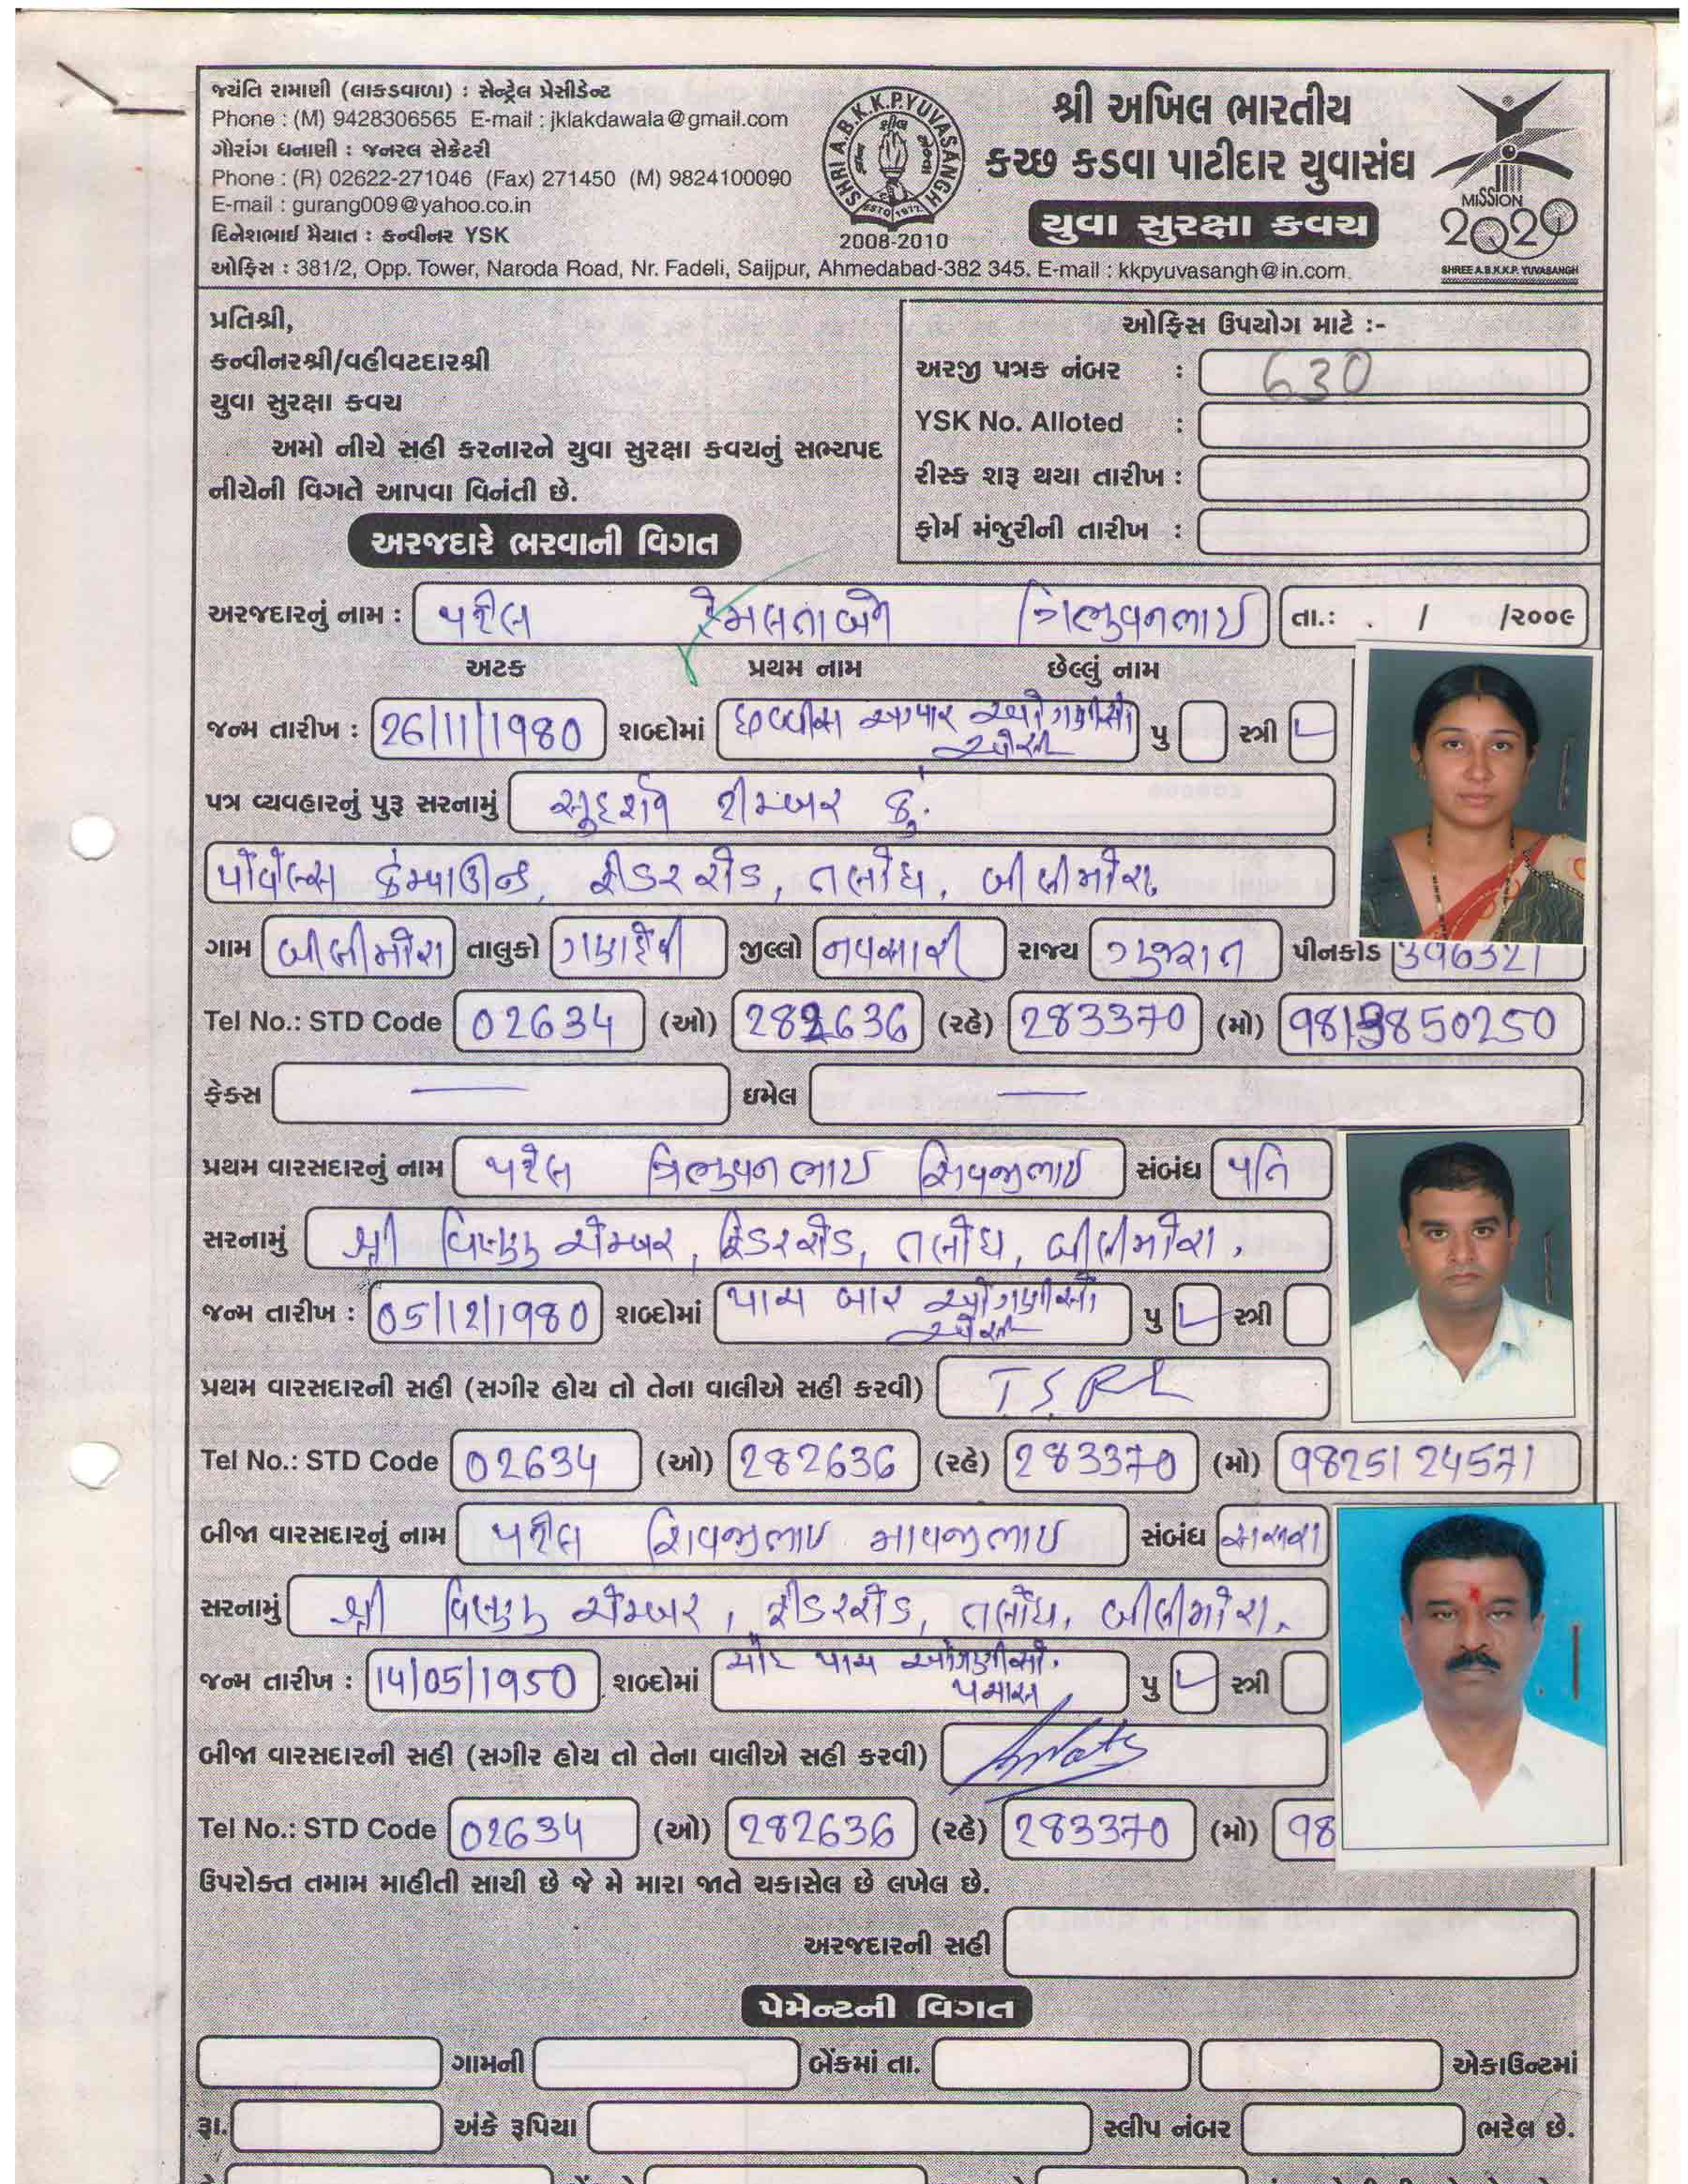 જયંતિ રામાણી (લાકડાવાળા) : સેન્ટ્રેલ પ્રેસીડેન્ટ
Phone : (M) 9428306565 E-mail : jklakdawala@gmail.com
ગૌરાંગ ધનાણી : જનરલ સેક્રેટરી
Phone : (R) 02622-271046 (Fax) 271450 (M) 9824100090
E-mail : gurang009@yahoo.co.in
દિનેશભાઈ મૈયાત : કન્વીનર YSK
SHRI A.B.K.K.P. YUVASANGH
ESTD 1972
2008-2010
શ્રી અખિલ ભારતીય
કચ્છ કડવા પાટીદાર યુવાસંઘ
યુવા સુરક્ષા કવચ
MISSION
2020
SHREE A.B.K.K.P. YUVASANGH
ઓફિસ : 381/2, Opp. Tower, Naroda Road, Nr. Fadeli, Saijpur, Ahmedabad-382 345. E-mail : kkpyuvasangh@in.com.
પ્રતિશ્રી,
કન્વીનરશ્રી/વહીવટદારશ્રી
યુવા સુરક્ષા કવચ
અમો નીચે સહી કરનારને યુવા સુરક્ષા કવચનું સભ્યપદ
નીચેની વિગતે આપવા વિનંતી છે.
ઓફિસ ઉપયોગ માટે :-
અરજી પત્રક નંબર : 630
YSK No. Alloted :
રીસ્ક શરૂ થયા તારીખ :
ફોર્મ મંજુરીની તારીખ :
અરજદારે ભરવાની વિગત
અરજદારનું નામ : પટેલ હેમલતાબેન ત્રિભુવનભાઈ તા.: . / /૨૦૦૯
અટક પ્રથમ નામ છેલ્લું નામ
જન્મ તારીખ : 26/11/1980 શબ્દોમાં છવ્વીસ અગ્યાર ઓગણીસો એંસી પુ સ્ત્રી
પત્ર વ્યવહારનું પુરૂ સરનામું સુદર્શન ટીમ્બર કું.
કમ્પાઉન્ડ, રીડર રોડ, તલોધ, બીલીમોરા.
ગામ બીલીમોરા તાલુકો ગણદેવી જીલ્લો નવસારી રાજ્ય ગુજરાત પીનકોડ 396321
Tel No.: STD Code 02634 (ઓ) 282636 (રહે) 283370 (મો)
ફેક્સ — ઇમેલ —
પ્રથમ વારસદારનું નામ પટેલ ત્રિભુવનભાઈ શિવજીભાઈ સંબંધ પતિ
સરનામું શ્રી વિષ્ણુ સોમ્બર, રીડર રોડ, તલોધ, બીલીમોરા.
જન્મ તારીખ : 05/12/1980 શબ્દોમાં પાચ બાર ઓગણીસો એંસી પુ સ્ત્રી
પ્રથમ વારસદારની સહી (સગીર હોય તો તેના વાલીએ સહી કરવી)
Tel No.: STD Code 02634 (ઓ) 282636 (રહે) 283370 (મો) 9825124571
બીજા વારસદારનું નામ પટેલ શિવજીભાઈ માવજીભાઈ સંબંધ સસરા
સરનામું શ્રી વિષ્ણુ સોમ્બર, રીડર રોડ, તલોધ, બીલીમોરા.
જન્મ તારીખ : 14/05/1950 શબ્દોમાં ચૌદ પાચ ઓગણીસો પચાસ પુ સ્ત્રી
બીજા વારસદારની સહી (સગીર હોય તો તેના વાલીએ સહી કરવી)
Tel No.: STD Code 02634 (ઓ) 282636 (રહે) 283370 (મો) 98
ઉપરોક્ત તમામ માહીતી સાચી છે જે મે મારા જાતે ચકાસેલ છે લખેલ છે.
અરજદારની સહી
પેમેન્ટની વિગત
ગામની બેંકમાં તા. એકાઉન્ટમાં
રૂા. અંકે રૂપિયા સ્લીપ નંબર ભરેલ છે.